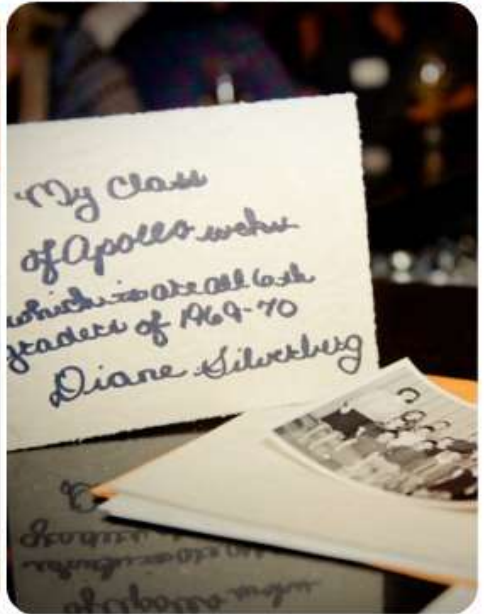 "My Class
of Apollo
which is are all 6th
graders of 1969-70
Diane Silverberg